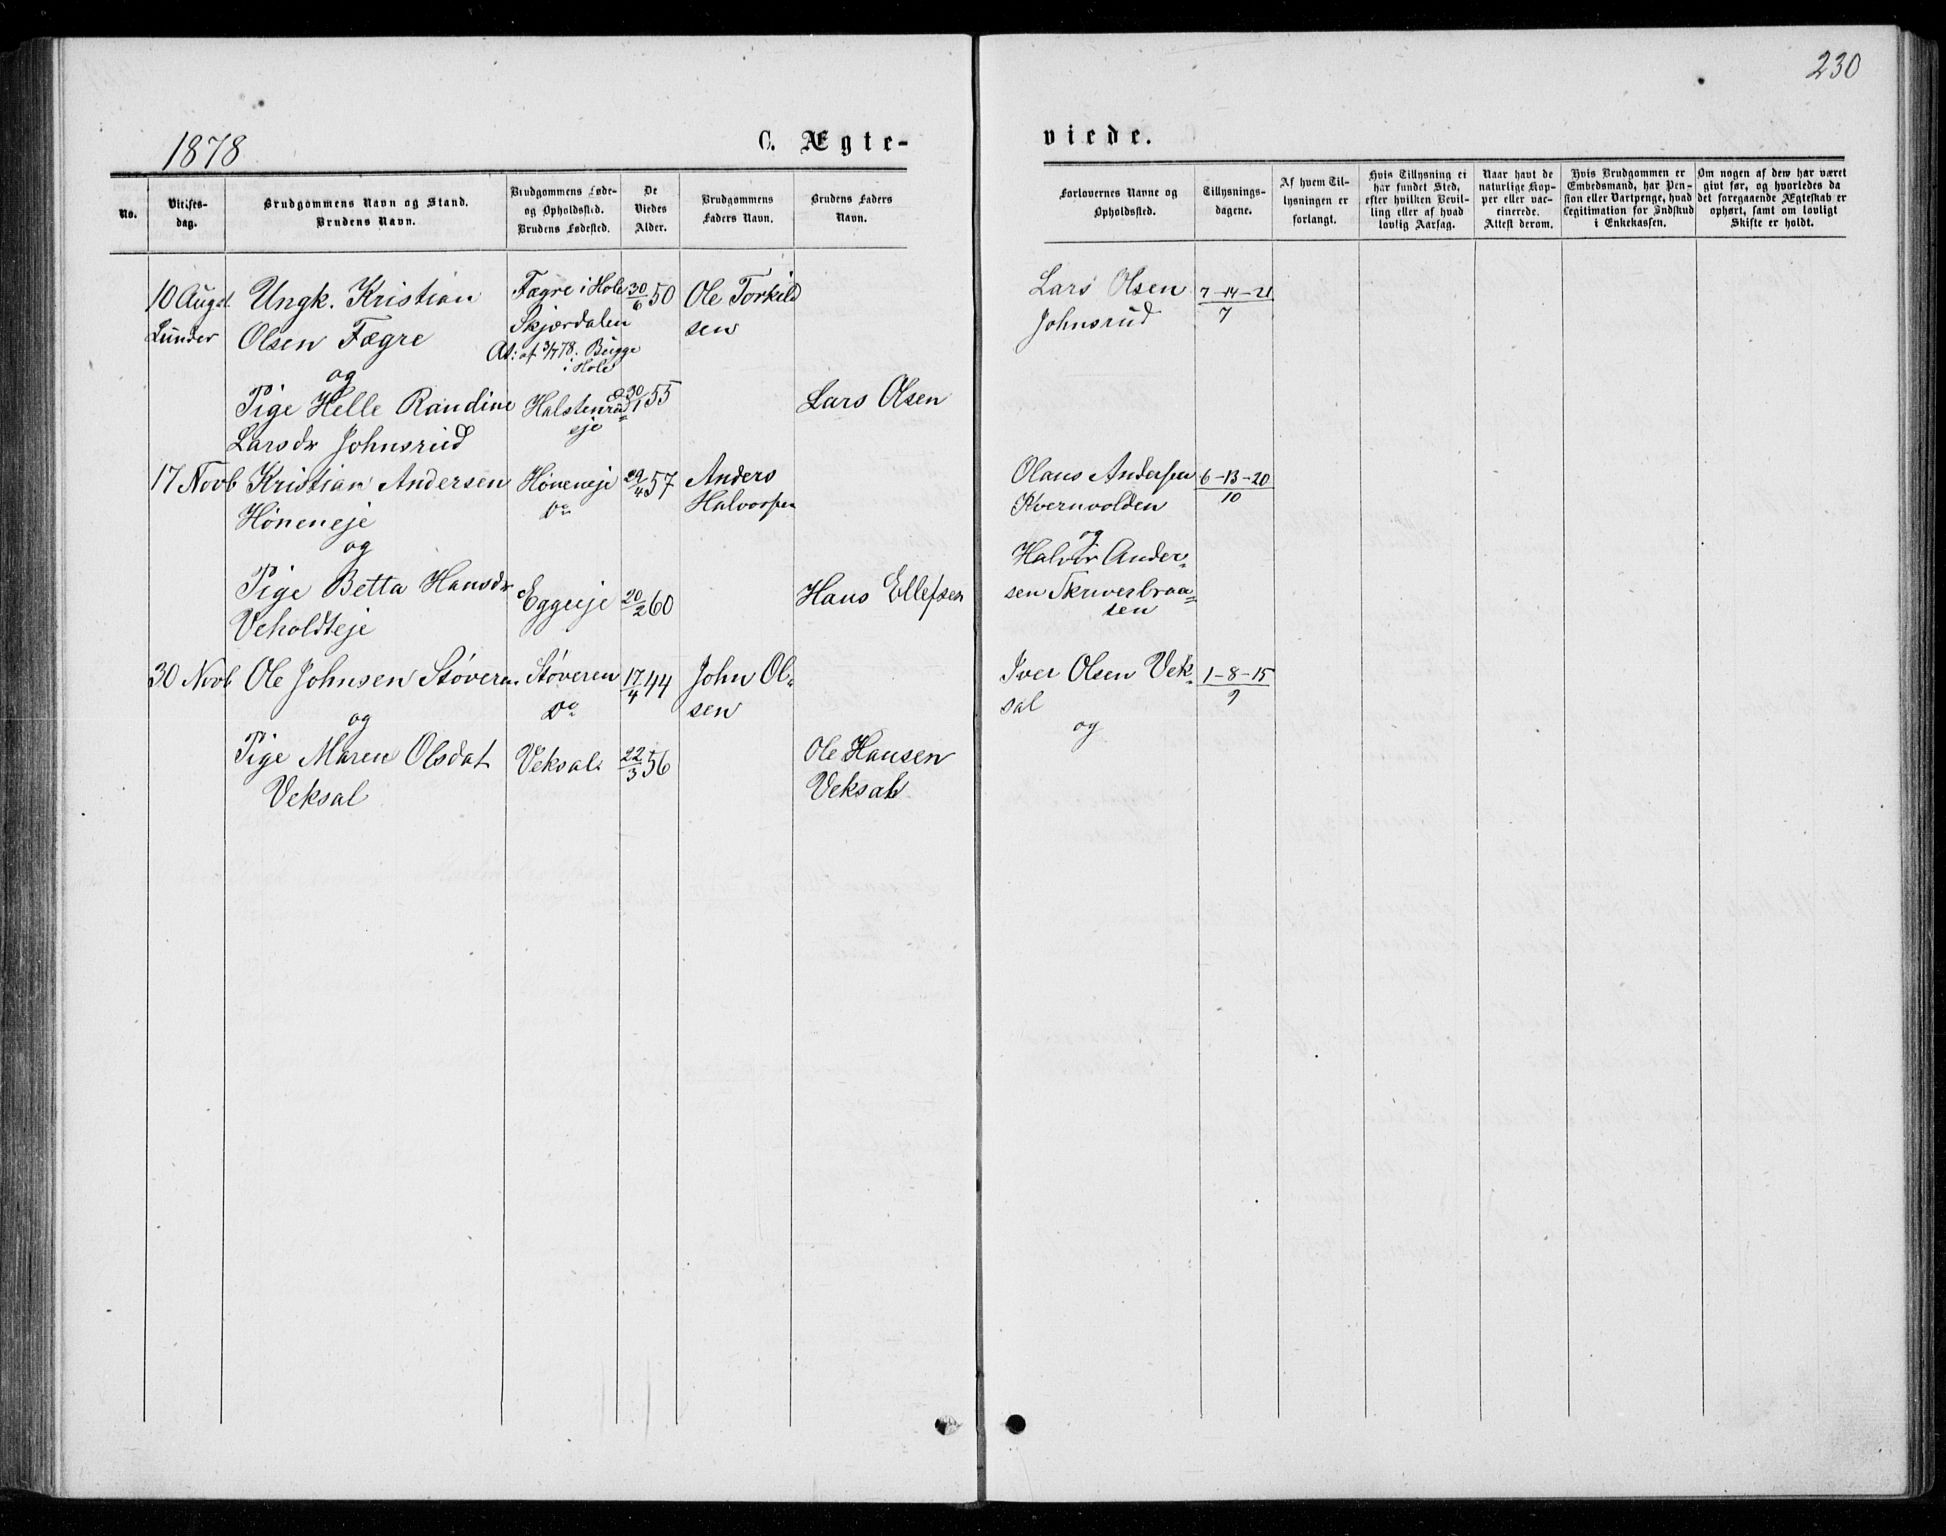 230
1878
C. Ægte-
viede.
No.
Vielses-
dag.
Brudgommens Navn og Stand.
Brudens Navn.
Brudgommens Føde-
og Opholdssted.
Brudens Fødested.
De
Viedes
Alder.
Brudgommens
Faders Navn.
Brudens Faders
Navn.
Forlovernes Navne og
Opholdssted.
Tillysnings-
dagene.
Af hvem Til-
lysningen er
forlangt.
Hvis Tillysning ei
har fundet Sted,
efter hvilken Bevil-
ling eller af hvad
lovlig Aarsag.
Naar havt de
naturlige Kop-
per eller vac-
cinerede.
Attest derom.
Hvis Brudgommen er
Embedsmand, har Pen-
sion eller Vartpenge, hvad
Legitimation for Indskud
i Enkekassen.
Om nogen af dem har været
givt før, og hvorledes da
det foregaaende Ægteskab er
ophørt, samt om lovligt
Skifte er holdt.
10 Augst
Lunder
Ungk. Kristian
Olsen Fægre
og
Pige Helle Randine
Larsdr Johnsrud
Fægre i Hole
Skjærdalen
At: af 3/7 78. Bugge
i Hole
Halstenrud
eje
30/6 50
30/1 55
Ole Torkild
sen
Lars Olsen
Lars Olsen
Johnsrud
7-14-21
7
17 Novb
Kristian Andersen
Höneneje
og
Pige Betta Hansdr
Veholdteje
Höneneje
Do
Eggeeje
29/4 57
20/2 60
Anders
Halvorsen
Hans Ellefsen
Olaus Andersen
Kvernvolden
og
Halvor Ander-
sen Skriverbraa-
ten
6-13-20
10
30 Novb
Ole Johnsen Støveren
og
Pige Maren Olsdat
Veksal
Støveren
Do
Veksal
17/4 44
22/3 56
John Ol-
sen
Ole Hansen
Veksal
Iver Olsen Vek-
sal
og
1-8-15
9